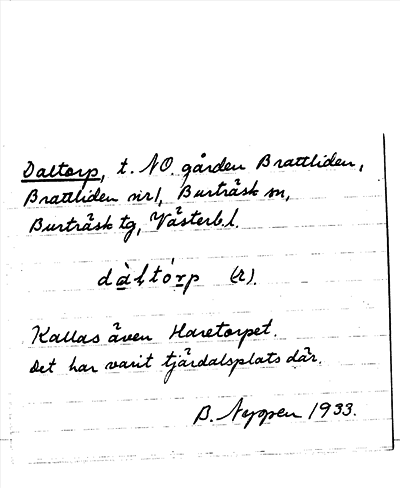 Daltorp, t. NO. gården Brattliden,
Brattliden nr 1, Burträsk sn,
Burträsk tg, Västerb. l.
dàltórp (r).
Kallas även Haretorpet.
Det har varit tjärdalsplats där.
B. Nyppen 1933.